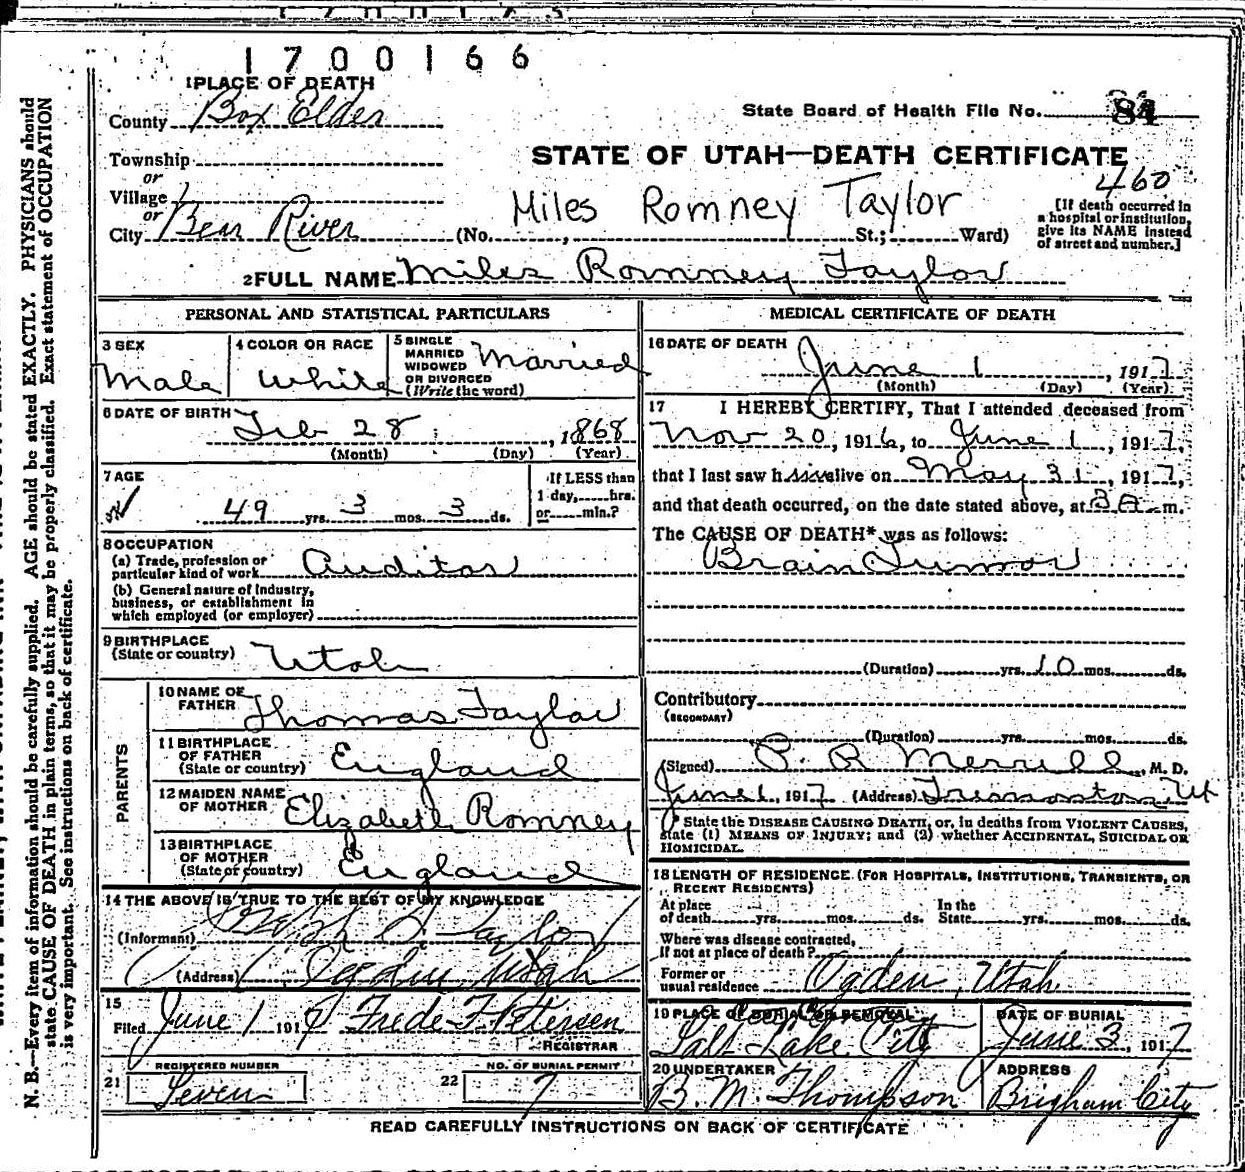 1700166
1 PLACE OF DEATH
County Box Elder
State Board of Health File No. 84
Township
or
Village
or
City Bear River
STATE OF UTAH—DEATH CERTIFICATE
460
Miles Romney Taylor
(No. , St.; Ward)
[If death occurred in
a hospital or institution,
give its NAME instead
of street and number.]
2 FULL NAME Miles Romney Taylor
PERSONAL AND STATISTICAL PARTICULARS
3 SEX
Male
4 COLOR OR RACE
White
5 SINGLE
MARRIED
WIDOWED
OR DIVORCED
(Write the word)
Married
6 DATE OF BIRTH
Feb 28, 1868
(Month) (Day) (Year)
7 AGE
49 yrs. 3 mos. 3 ds.
If LESS than
1 day, hrs.
or min.?
8 OCCUPATION
(a) Trade, profession or
particular kind of work Auditor
(b) General nature of Industry,
business, or establishment in
which employed (or employer)
9 BIRTHPLACE
(State or country) Utah
PARENTS
10 NAME OF
FATHER Thomas Taylor
11 BIRTHPLACE
OF FATHER
(State or country) England
12 MAIDEN NAME
OF MOTHER Elizabeth Romney
13 BIRTHPLACE
OF MOTHER
(State or country) England
14 THE ABOVE IS TRUE TO THE BEST OF MY KNOWLEDGE
(Informant) Taylor
(Address) Ogden, Utah
15
Filed June 1 1917 Frede F Petersen
REGISTRAR
REGISTERED NUMBER
21 Seven
NO. OF BURIAL PERMIT
22 7
MEDICAL CERTIFICATE OF DEATH
16 DATE OF DEATH
June 1, 1917
(Month) (Day) (Year)
17 I HEREBY CERTIFY, That I attended deceased from
Nov 20, 1916, to June 1, 1917,
that I last saw him alive on May 31, 1917,
and that death occurred, on the date stated above, at 3 A m.
The CAUSE OF DEATH* was as follows:
Brain Tumor
(Duration) yrs. 10 mos. ds.
Contributory
(SECONDARY)
(Duration) yrs. mos. ds.
(Signed) P. R. Merrill, M. D.
June 1, 1917 (Address) Tremonton Ut
* State the DISEASE CAUSING DEATH, or, in deaths from VIOLENT CAUSES,
state (1) MEANS OF INJURY; and (2) whether ACCIDENTAL, SUICIDAL OR
HOMICIDAL.
18 LENGTH OF RESIDENCE (FOR HOSPITALS, INSTITUTIONS, TRANSIENTS, OR
RECENT RESIDENTS)
At place
of death yrs. mos. ds.
In the
State yrs. mos. ds.
Where was disease contracted,
if not at place of death?
Former or
usual residence Ogden, Utah
19 PLACE OF BURIAL OR REMOVAL
Salt Lake City
DATE OF BURIAL
June 3, 1917
20 UNDERTAKER
B. M. Thompson
ADDRESS
Brigham City
READ CAREFULLY INSTRUCTIONS ON BACK OF CERTIFICATE
N. B.—Every item of information should be carefully supplied. AGE should be stated EXACTLY. PHYSICIANS should
state CAUSE OF DEATH in plain terms, so that it may be properly classified. Exact statement of OCCUPATION
is very important. See instructions on back of certificate.